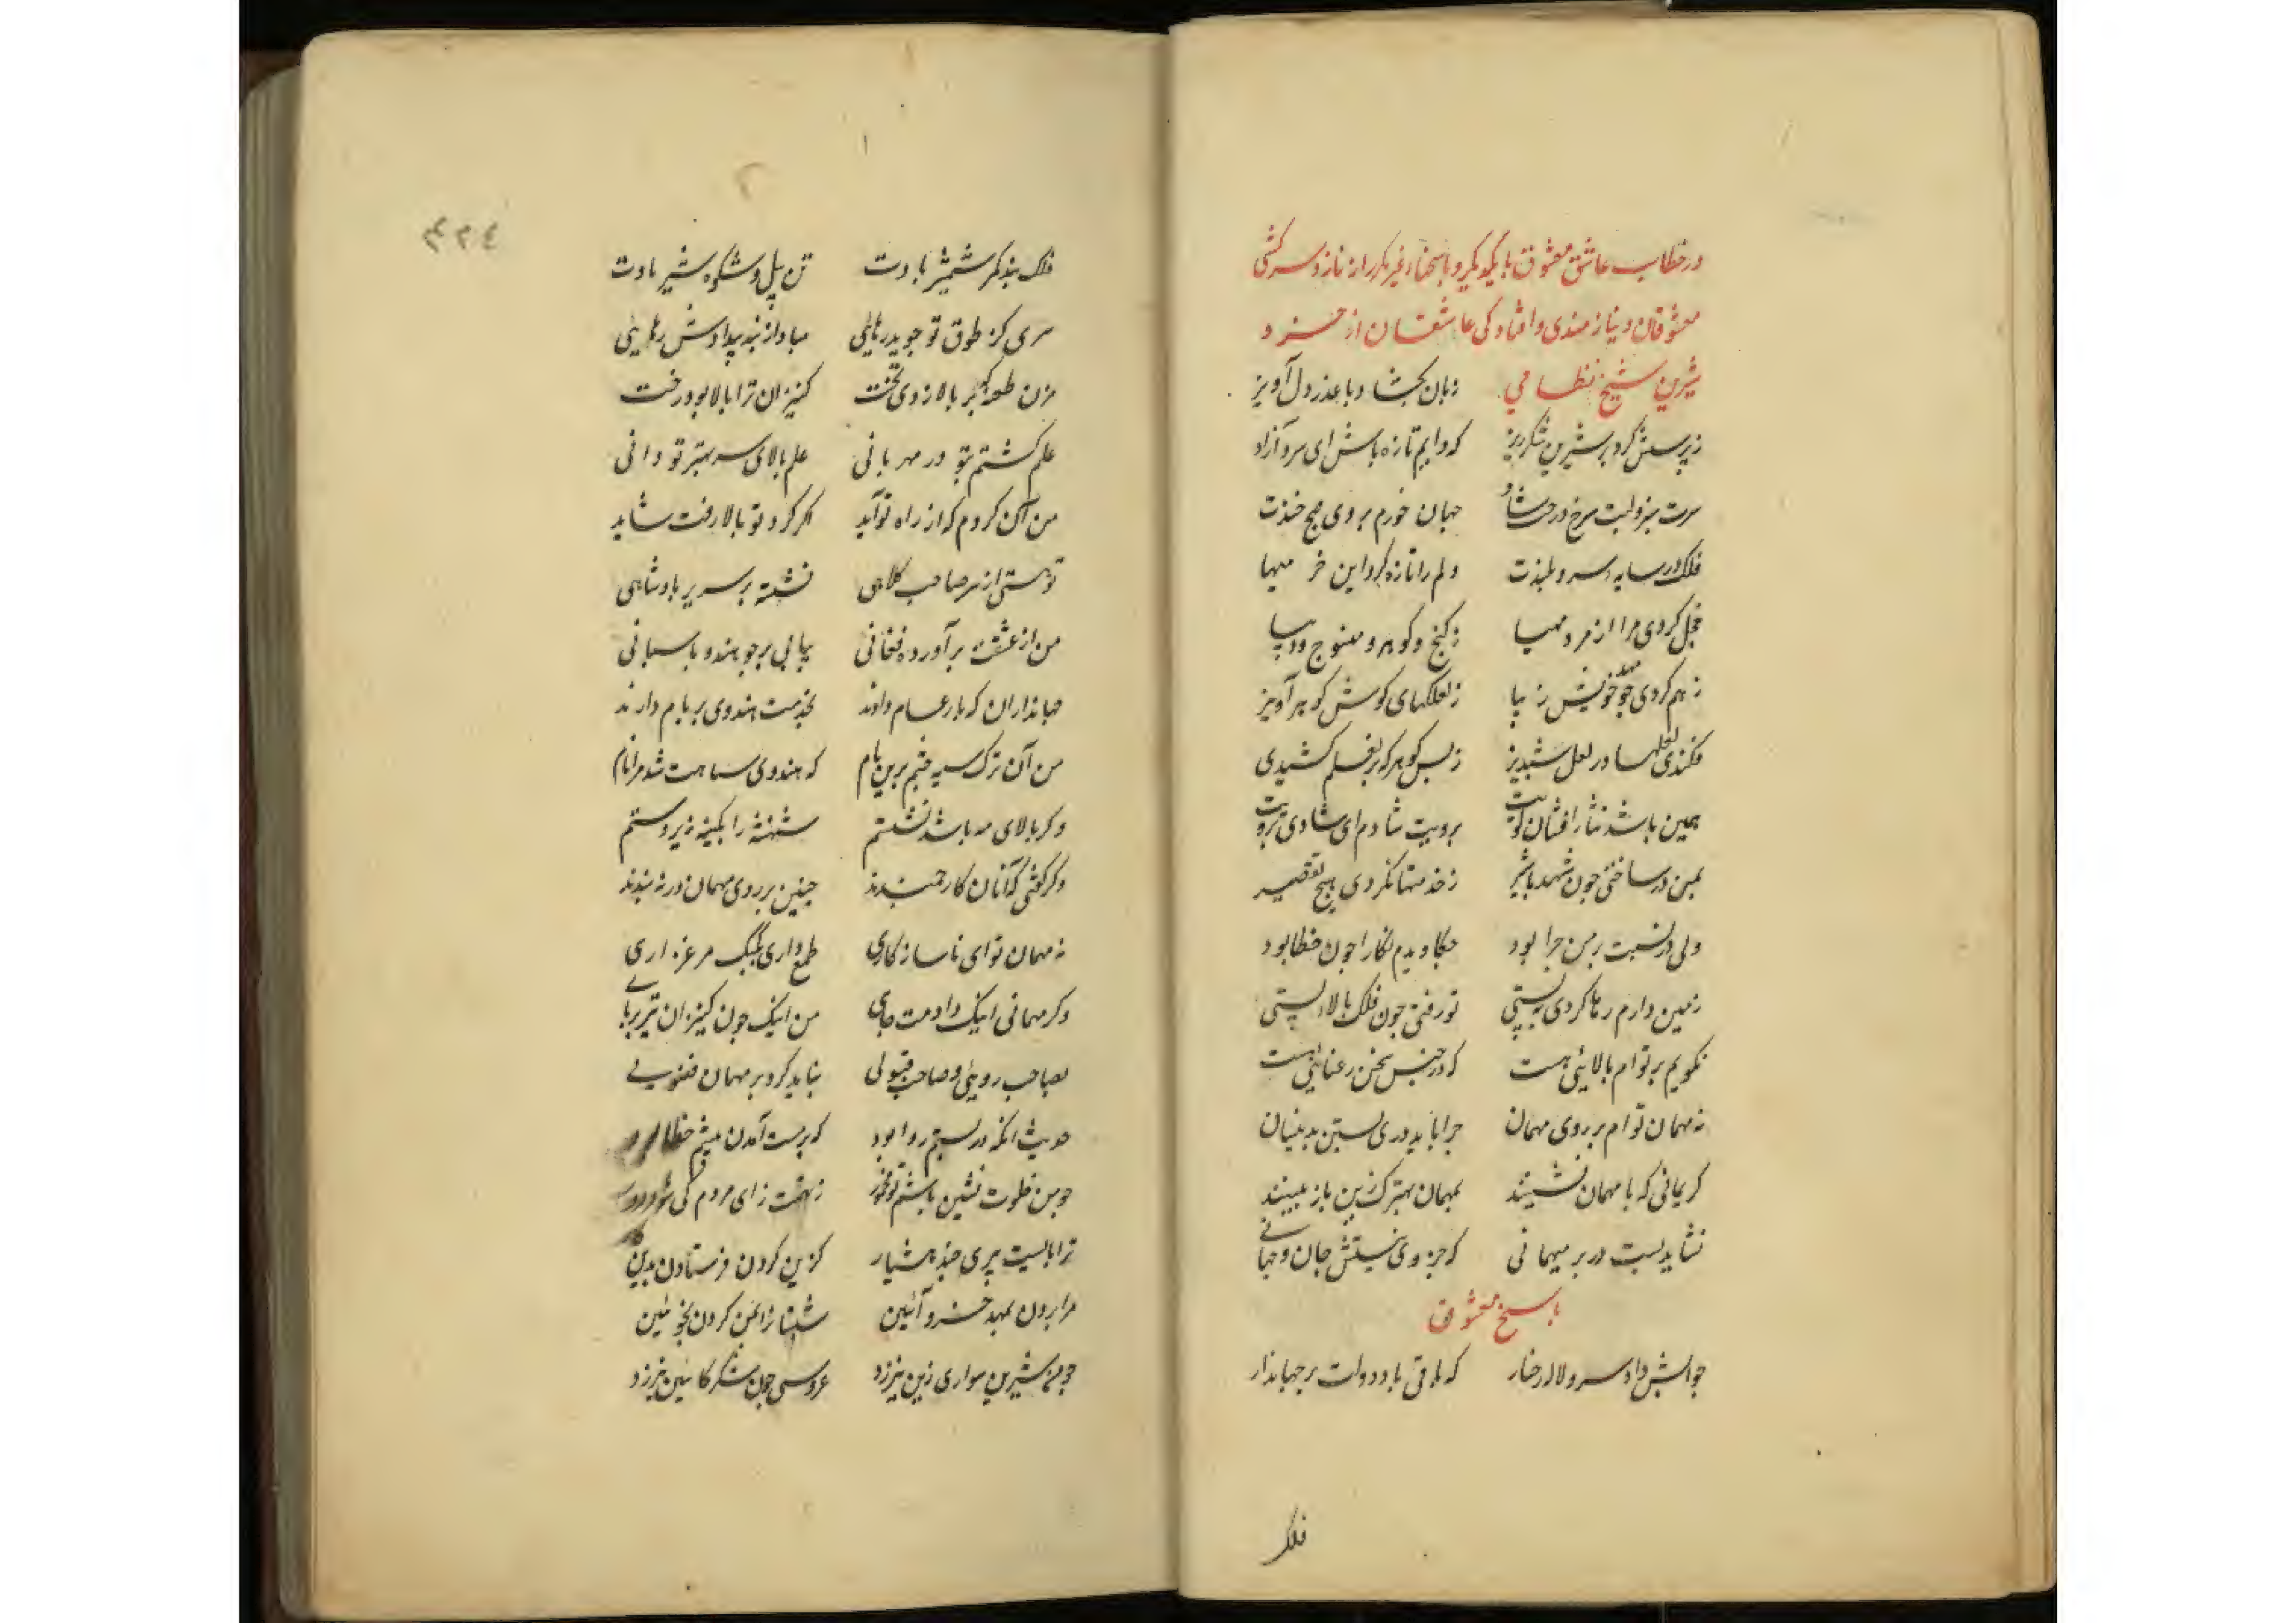 در خطاب عاشق معشوق با یکدیگر و پاسخهاء غیر مکرر از ناز و سرکشی
معشوقان و نیازمندی و افتادکی عاشقان از خسرو
شیرین شیخ نظامی زبان بکشاد با عذر دل آویز
ز پرسش کرد بر شیرین شکرریز که دایم تازه باش ای سرو آزاد
سرت سبز و لبت سرخ و رخت شاد جهان خورم بروی صبح خندت
فلک در سایه سرو بلندت دلم را تازه کرد این خرمیها
خجل کردی مرا از مردمیها ز کنج و کوهر و منسوج و دیبا
رهم کردی چو مهد خویش زیبا ز لعلکهای کوش کوهرآویز
فکندی لعلها در نعل شبدیز ز بس کوهر که بر نعلم کشیدی
همین باشد نثار افشان کویت برویت شادم ای شادی برویت
بمن در ساختی چون شهد با شیر ز خدمتها نکردی هیچ تقصیر
ولی در بستنت بر من چرا بود خطا دیدم نکارا چون خطا بود
زمین وارم رها کردی به پستی تو رفتی چون فلک بالا نشستی
نکویم بر توام بالائی هست که در جنس سخن رعنائی هست
نه مهمان توام بر روی مهمان چرا باید دری بستن بدینسان
کریمانی که با مهمان نشینند بمهمان بهترک زین باز بینند
نشاید بست در بر میهمانی که جز وی نیستش جان و جهانی
پاسخ معشوق
جوابش داد سرو لاله رخسار که باقی باد دولت بر جهاندار
فلک
۳۲۴
فلک بند کمر شمشیر بادت تن پیل و شکوه شیر بادت
سری کز طوق تو جوید رهایی مباد از بند بیدادش رهایی
مزن طعنه که بر بالا زدی تخت کنیزان ترا بالا بود رخت
علم کشتم بتو در مهربانی علم بالای سر بهتر تو دانی
من آن کردم که از راه تو آید اکر کرد تو بالا رفت شاید
تو هستی از سر صاحب کلاهی نشسته بر سریر پادشاهی
من از عشقت برآورده فغانی ببامی بر چو هندو پاسبانی
جهانداران که بار عام دادند بخدمت هندوی بر بام دارند
من آن ترک سیه چشمم برین بام که هندوی سپاهت شد مرا نام
وکر بالای مه باشد نشستم شهنشه را کمینه زیر دستم
وکر کفتی که آنان کارجمندند چنین بر روی مهمان در نبندند
نه مهمان توای ناسازکاری طمع داری بکبک مرغزاری
وکر مهمانی اینک دادمت جای من اینک چون کنیزان تو بر پای
بصاحب رویئی و صاحب قبولی نباید کرد بر مهمان فضولی
حدیث انکه در بستم روا بود که سرمست آمدن پیشم خطا بود
چو من خلوت نشین باشم تو مخمور ز تهمت رای مردم کی شود دور
ترا بایست پیری چند هشیار کزین کردن فرستادن بدین کار
مرا بردن بمهد خسرو آئین شبستان را بمن کردن نو آئین
چو من شیرین سواری زین نیرزد عروسی چون شکر کابین نیرزد